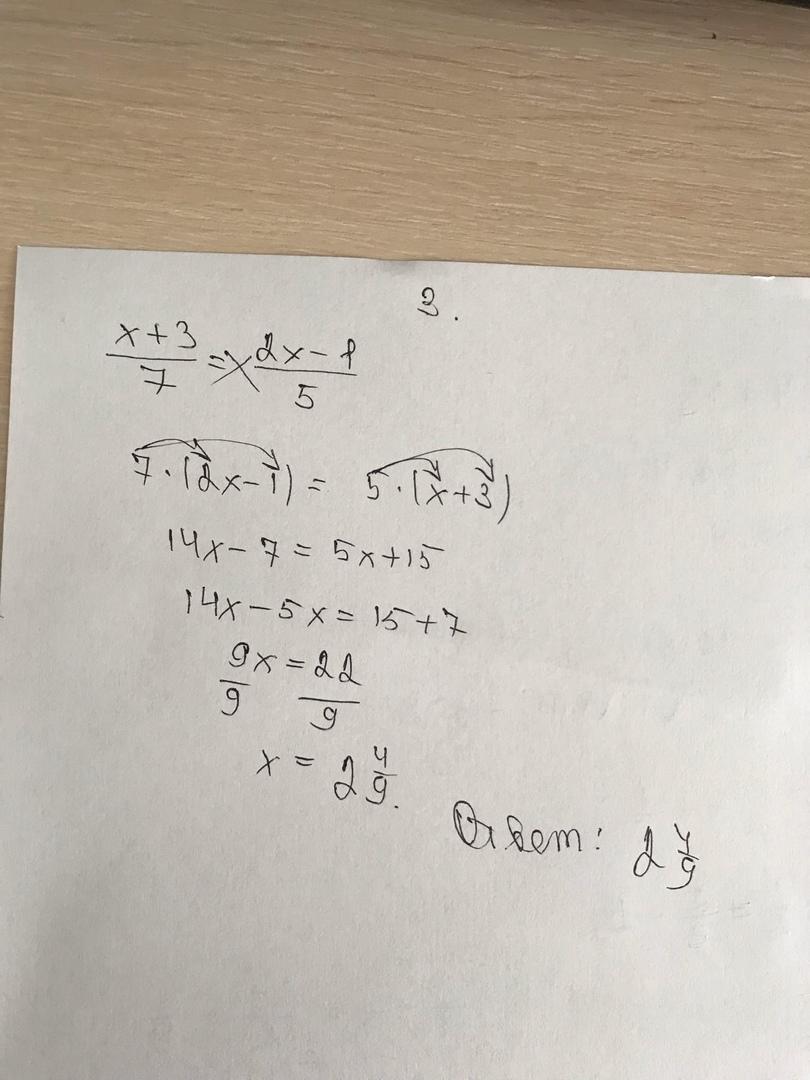 3.
x+3/7 = 2x-1/5
7·(2x-1) = 5·(x+3)
14x-7 = 5x+15
14x-5x = 15+7
9x/9 = 22/9
x = 2 4/9.
Ответ: 2 4/9